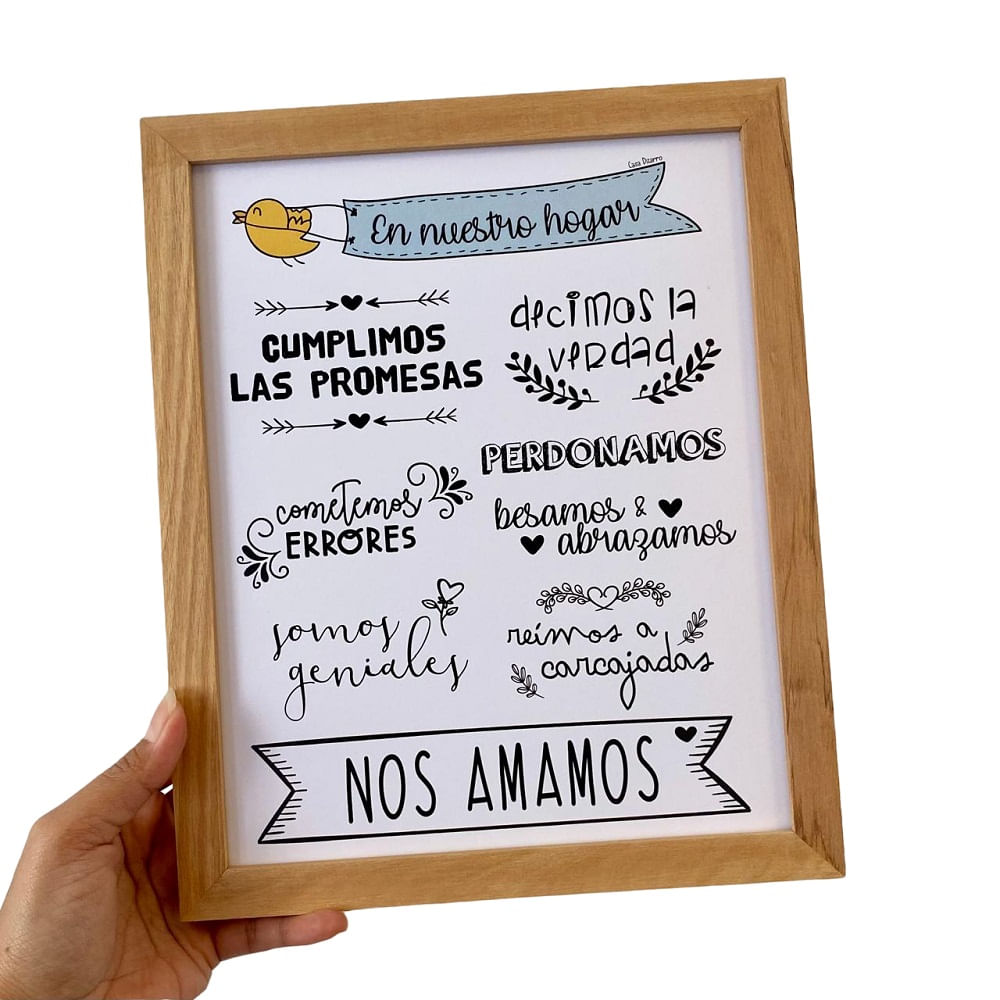 Casa Dizarro
En nuestro hogar
CUMPLIMOS
LAS PROMESAS
decimos la
verdad
PERDONAMOS
cometemos
ERRORES
besamos &
abrazamos
somos
geniales
reímos a
carcajadas
NOS AMAMOS